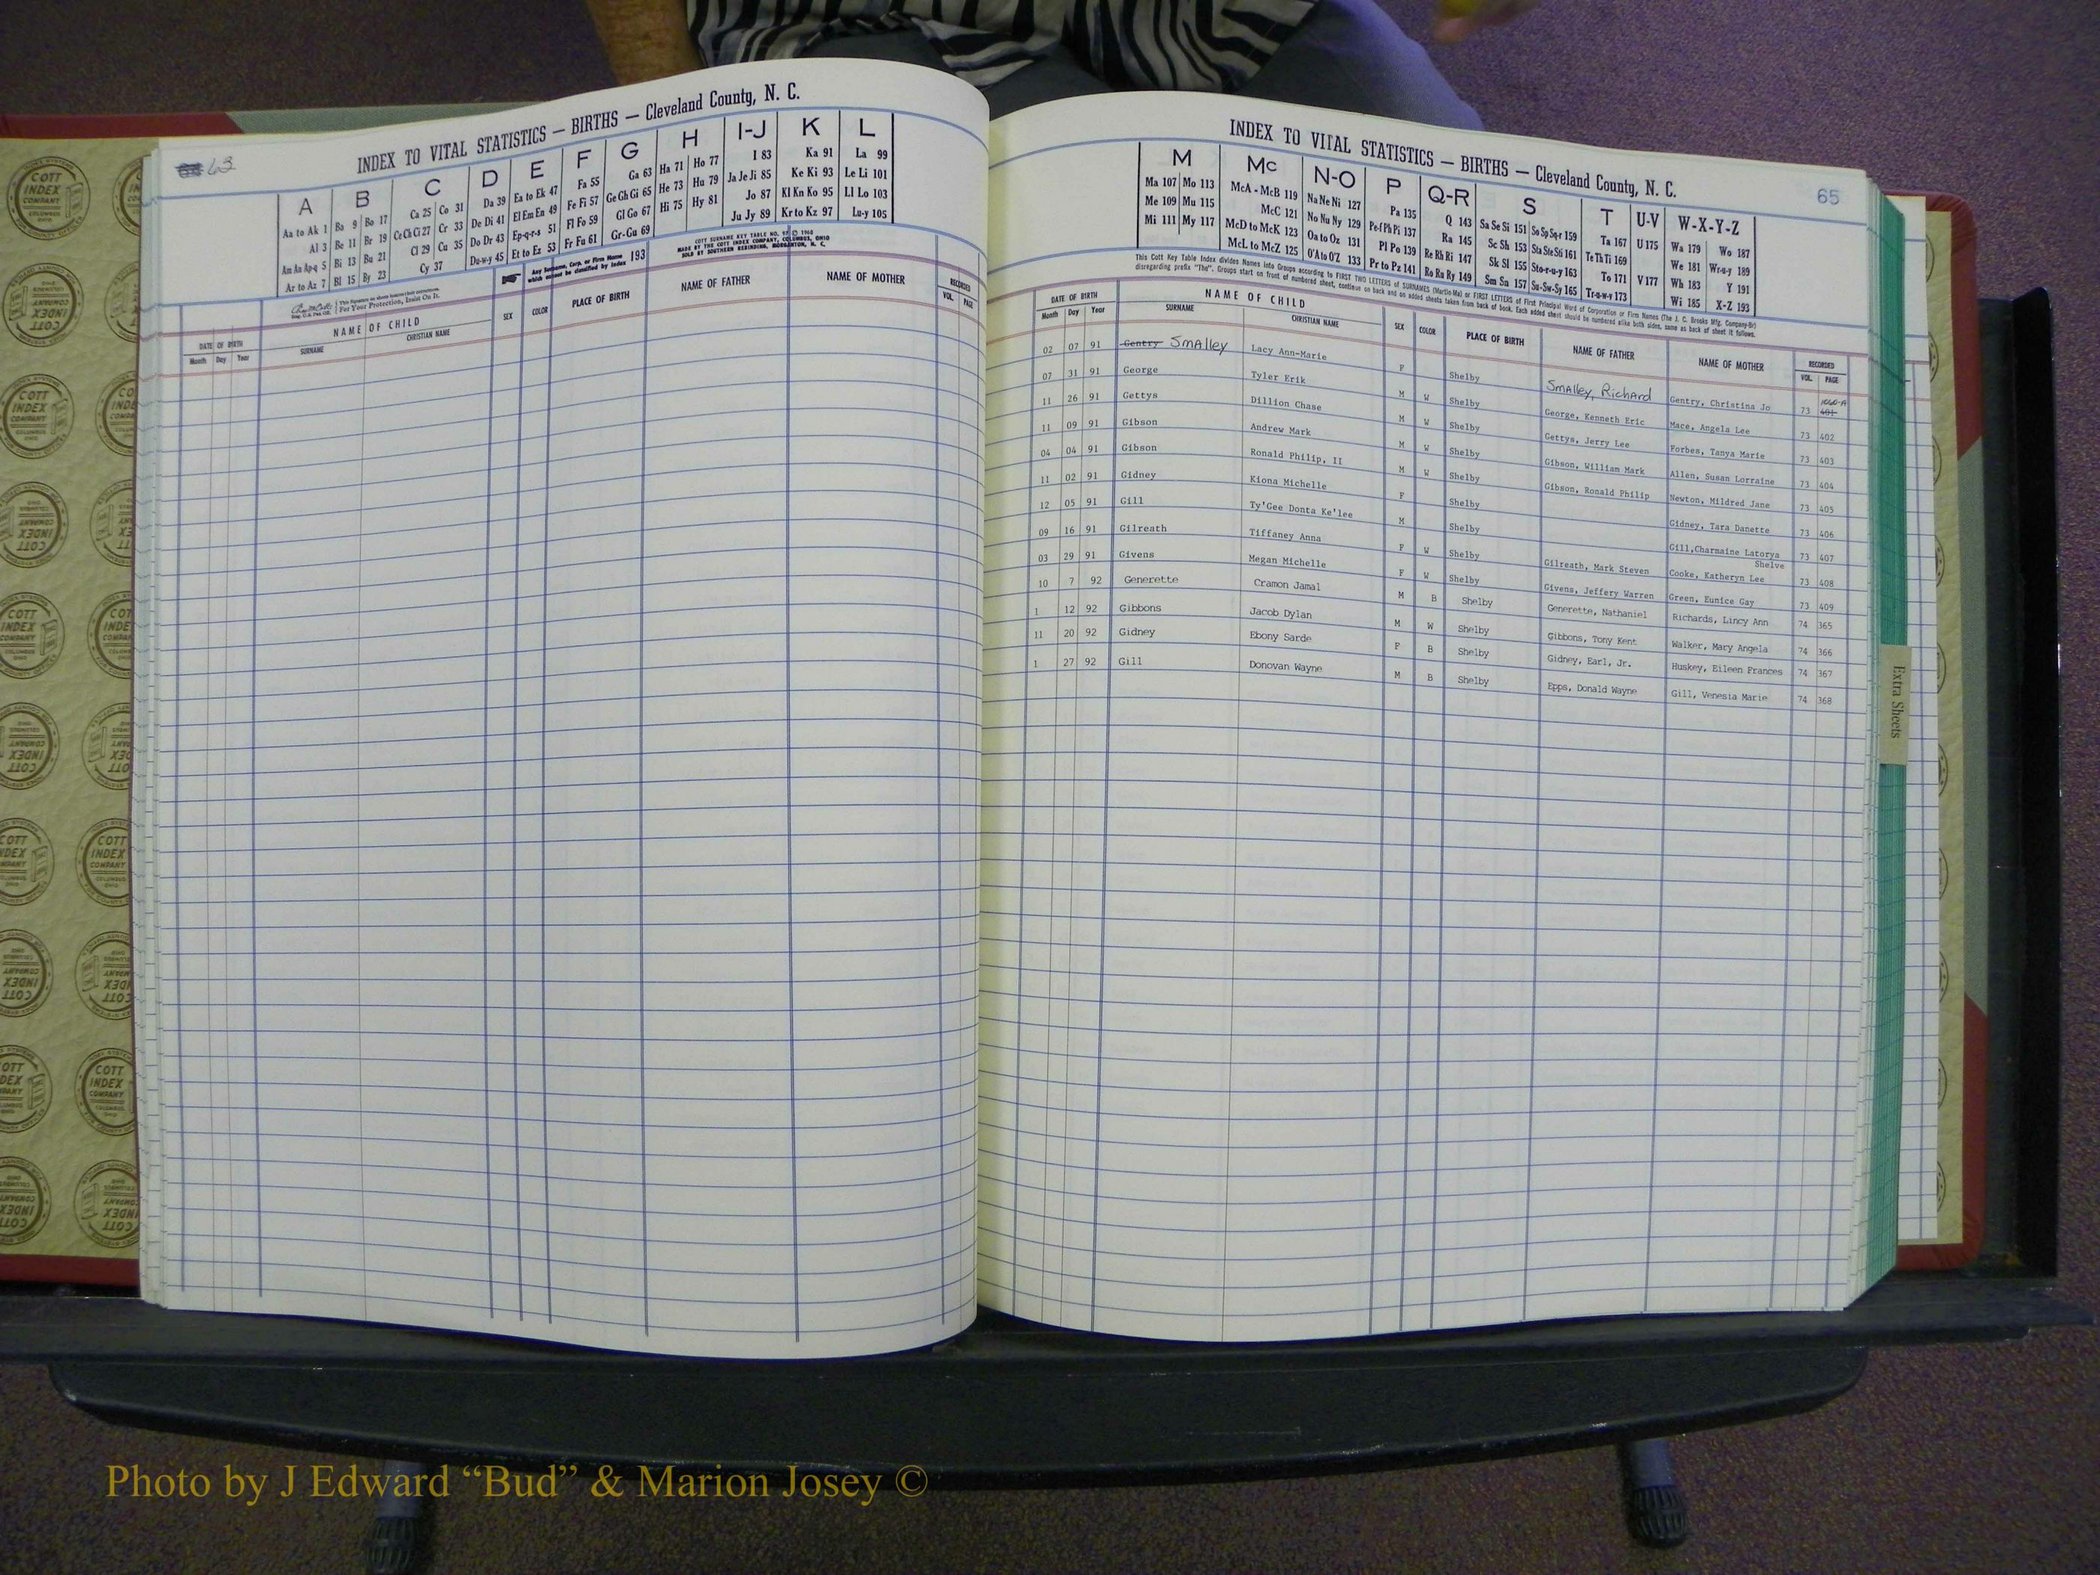 63
INDEX TO VITAL STATISTICS — BIRTHS — Cleveland County, N. C.
A B C D E F G H I-J K L
Aa to Ak 1 Ba 9 Bo 17 Ca 25 Co 31 Da 39 Ea to Ek 47 Fa 55 Ga 63 Ha 71 Ho 77 I 83 Ka 91 La 99
Al 3 Be 11 Br 19 Ce Ch Ci 27 Cr 33 De Di 41 El Em En 49 Fe Fi 57 Ge Gh Gi 65 He 73 Hu 79 Ja Je Ji 85 Ke Ki 93 Le Li 101
Am An Ap-q 5 Bi 13 Bu 21 Cl 29 Cu 35 Do Dr 43 Ep-q-r-s 51 Fl Fo 59 Gl Go 67 Hi 75 Hy 81 Jo 87 Kl Kn Ko 95 Ll Lo 103
Ar to Az 7 Bl 15 By 23 Cy 37 Du-w-y 45 Et to Ez 53 Fr Fu 61 Gr-Gu 69 Ju Jy 89 Kr to Kz 97 Lu-y 105
Any Surname, Corp. or Firm Name which cannot be classified by Index 193
COTT SURNAME KEY TABLE NO. 97 © 1968
MADE BY THE COTT INDEX COMPANY, COLUMBUS, OHIO
SOLD BY SOUTHERN REBINDING, MORGANTON, N. C.
For Your Protection, Insist On It.
DATE OF BIRTH NAME OF CHILD SEX COLOR PLACE OF BIRTH NAME OF FATHER NAME OF MOTHER RECORDED
Month Day Year SURNAME CHRISTIAN NAME VOL. PAGE
INDEX TO VITAL STATISTICS — BIRTHS — Cleveland County, N. C.
65
M Mc N-O P Q-R S T U-V W-X-Y-Z
Ma 107 Mo 113 McA - McB 119 Na Ne Ni 127 Pa 135 Q 143 Sa Se Si 151 So Sp Sq-r 159 Ta 167 U 175 Wa 179 Wo 187
Me 109 Mu 115 McC 121 No Nu Ny 129 Pe-f Ph Pi 137 Ra 145 Sc Sh 153 Sta Ste Sti 161 Te Th Ti 169 We 181 Wr-u-y 189
Mi 111 My 117 McD to McK 123 Oa to Oz 131 Pl Po 139 Re Rh Ri 147 Sk Sl 155 Sto-r-u-y 163 To 171 V 177 Wh 183 Y 191
McL to McZ 125 O'A to O'Z 133 Pr to Pz 141 Ro Ru Ry 149 Sm Sn 157 Su-Sw-Sy 165 Tr-u-w-y 173 Wi 185 X-Z 193
This Cott Key Table Index divides Names into Groups according to FIRST TWO LETTERS of SURNAMES (Martin-Ma) or FIRST LETTERS of First Principal Word of Corporation or Firm Names (The J. C. Brooks Mfg. Company-Br)
disregarding prefix "The". Groups start on front of numbered sheet, continue on back and on added sheets taken from back of book. Each added sheet should be numbered alike both sides, same as back of sheet it follows.
DATE OF BIRTH NAME OF CHILD SEX COLOR PLACE OF BIRTH NAME OF FATHER NAME OF MOTHER RECORDED
Month Day Year SURNAME CHRISTIAN NAME VOL. PAGE
02 07 91 Gentry Smalley Lacy Ann-Marie F Shelby Smalley, Richard Gentry, Christina Jo 73 401 1060-A
07 31 91 George Tyler Erik M W Shelby George, Kenneth Eric Mace, Angela Lee 73 402
11 26 91 Gettys Dillion Chase M W Shelby Gettys, Jerry Lee Forbes, Tanya Marie 73 403
11 09 91 Gibson Andrew Mark M W Shelby Gibson, William Mark Allen, Susan Lorraine 73 404
04 04 91 Gibson Ronald Philip, II M W Shelby Gibson, Ronald Philip Newton, Mildred Jane 73 405
11 02 91 Gidney Kiona Michelle F Shelby Gidney, Tara Danette 73 406
12 05 91 Gill Ty'Gee Donta Ke'lee M Shelby Gill,Charmaine Latorya Shelve 73 407
09 16 91 Gilreath Tiffaney Anna F W Shelby Gilreath, Mark Steven Cooke, Katheryn Lee 73 408
03 29 91 Givens Megan Michelle F W Shelby Givens, Jeffery Warren Green, Eunice Gay 73 409
10 7 92 Generette Cramon Jamal M B Shelby Generette, Nathaniel Richards, Lincy Ann 74 365
1 12 92 Gibbons Jacob Dylan M W Shelby Gibbons, Tony Kent Walker, Mary Angela 74 366
11 20 92 Gidney Ebony Sarde F B Shelby Gidney, Earl, Jr. Huskey, Eileen Frances 74 367
1 27 92 Gill Donovan Wayne M B Shelby Epps, Donald Wayne Gill, Venesia Marie 74 368
Extra Sheets
COTT INDEX COMPANY COLUMBUS OHIO
Photo by J Edward “Bud” & Marion Josey ©